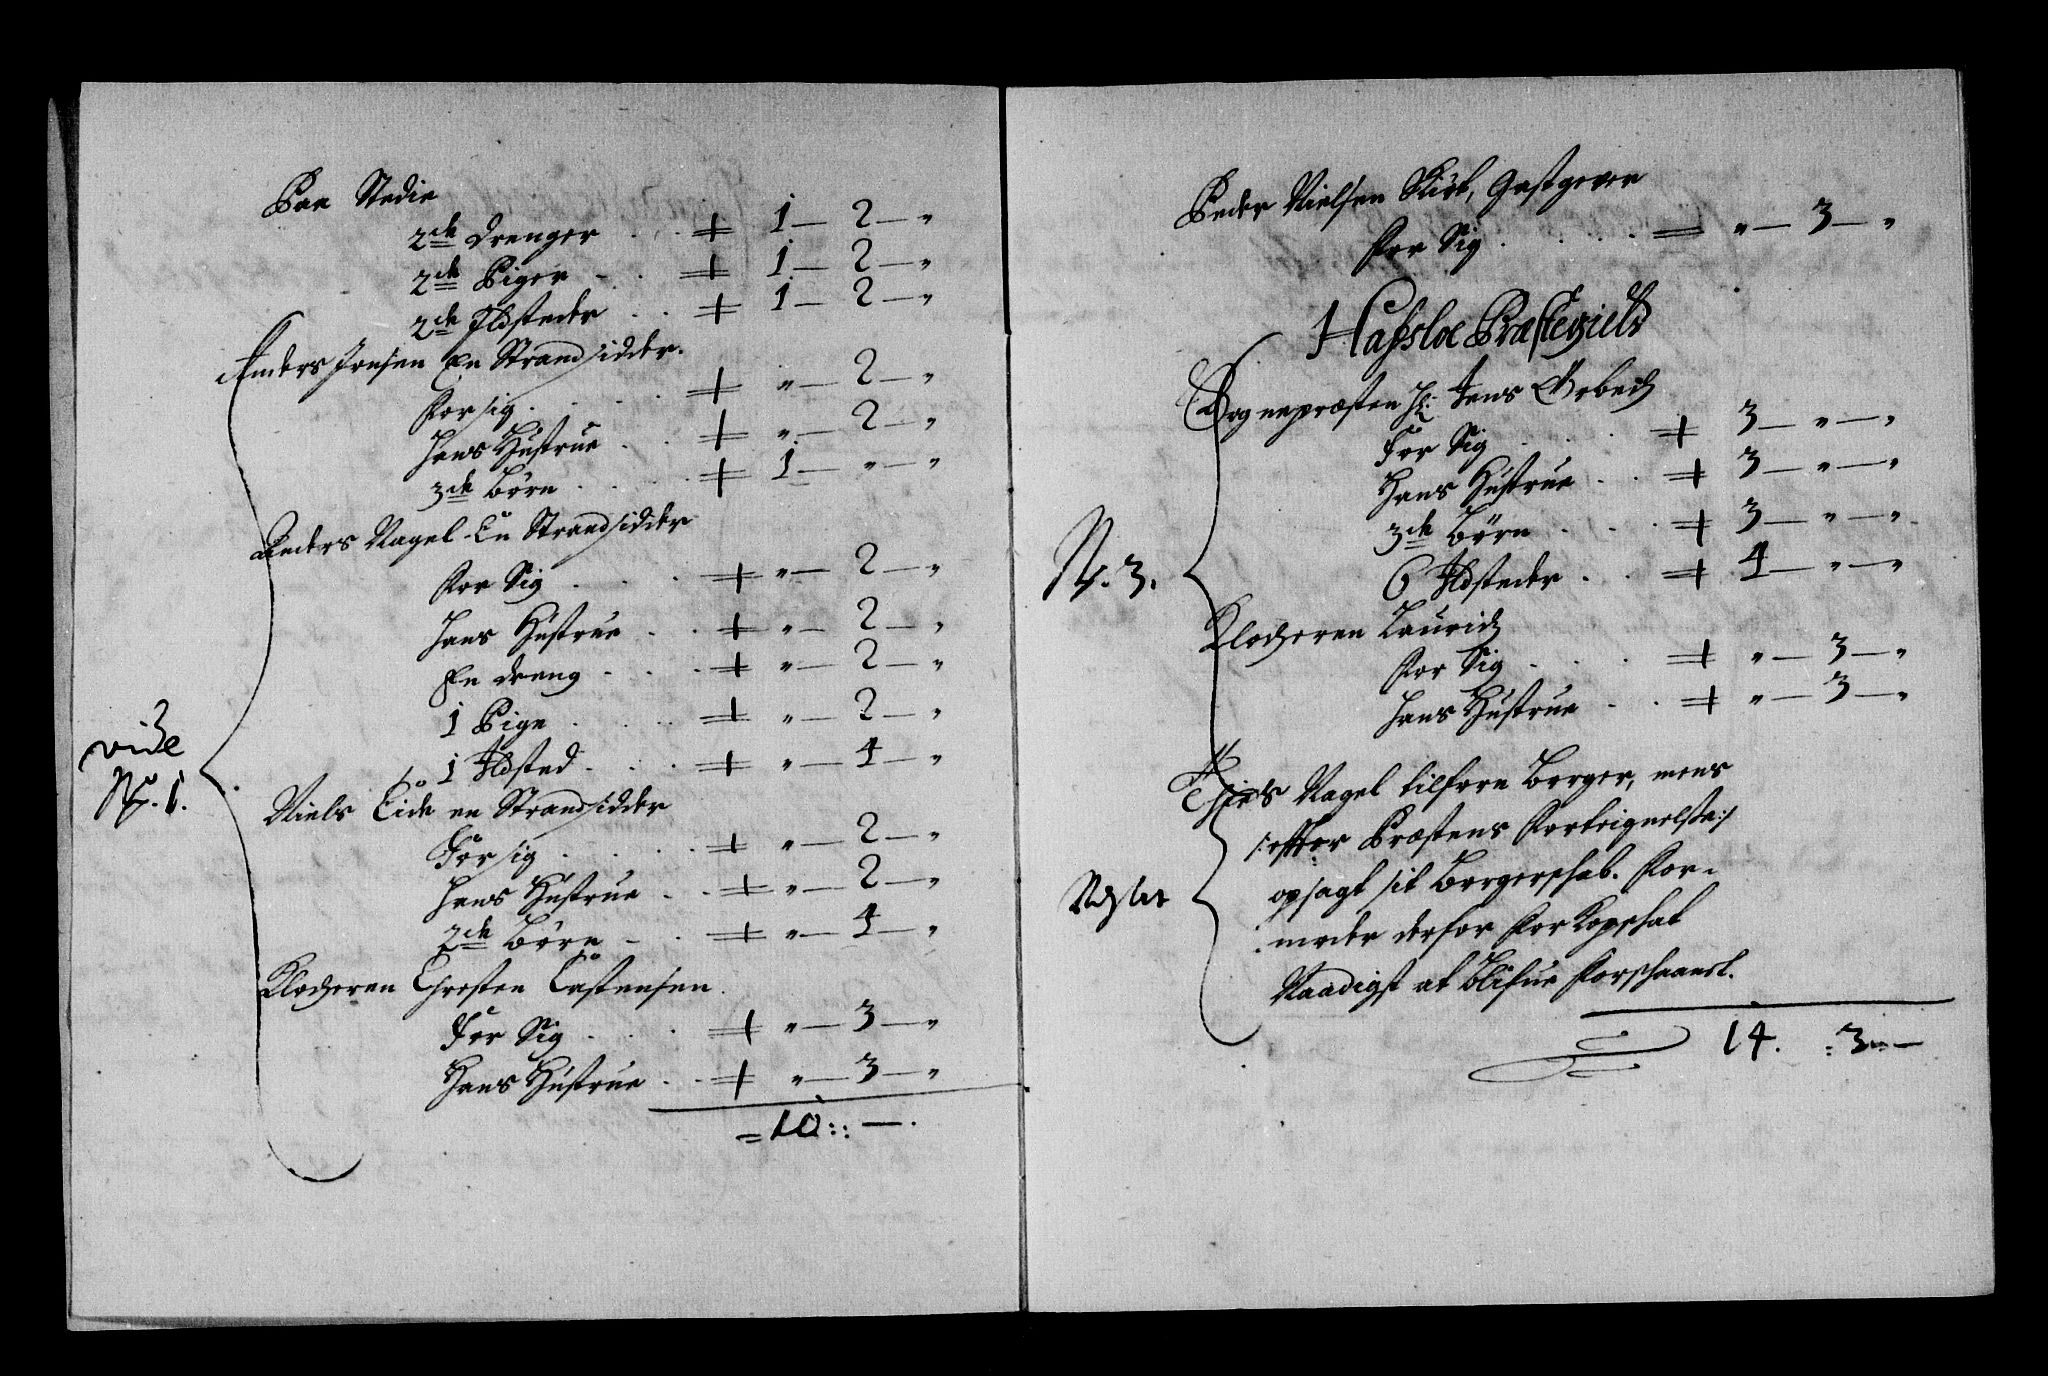 Paa Stedie
2de Drenger . . . 1 — 2 — "
2de Piger . . . 1 — 2 — "
2de Ildsteder . . . 1 — 2 — "
Anders Jensen En Strandsidder.
For sig . . . . " — 2 — "
Hans Hustrue . . . " — 2 — "
3de Börn . . . . 1 — " — "
Anders Nagel En Strandsidder
For Sig . . . . " — 2 — "
Hans Hustrue . . " — 2 — "
En dreng . . . . " — 2 — "
1 Pige . . . . " — 2 — "
vide
No. 1.
1 Ildsted . . . . " — 4 — "
Niels Eide en Strandsidder
For sig . . . . " — 2 — "
Hans Hustrue . . " — 2 — "
2de Börn . . " — 4 — "
Klocheren Chresten Castensen.
For Sig . . . " — 3 — "
Hans Hustrue . . " — 3 — "
10 :: —.
Peder Nielsen Gastgever
For Sig . . . . " — 3 — "
Hafsloe Præstegield
Sognepræsten Hr: Jens
For Sig . . . 3 — " — "
Hans Hustrue . . 3 — " — "
No. 3.
3de Börn . . . 3 — " — "
6 Ildsteder . . 4 — " — "
Klocheren Lauridz
For Sig . . . . " — 3 — "
Hans Hustrue . . " — 3 — "
Thies Nagel tilforn Borger, mens
/: efter Præstens Forteignelse :/
opsagt sit Borgerskab. For-
moder derfor For Kopskat
Naadigst at blifue Forskaanet.
14. : 3 —